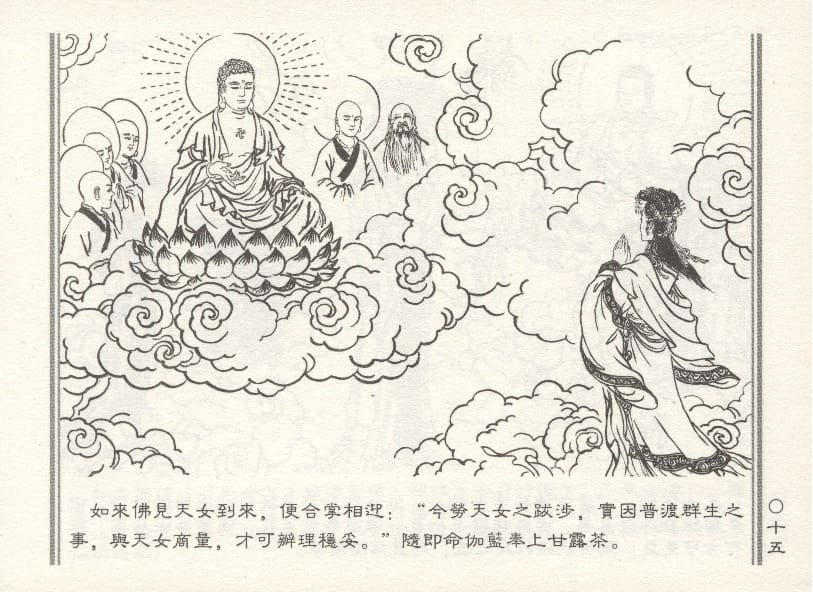 如來佛見天女到來，便合掌相迎：“今勞天女之跋涉，實因普渡群生之
事，與天女商量，才可辦理穩妥。”隨即命伽藍奉上甘露茶。
〇十五